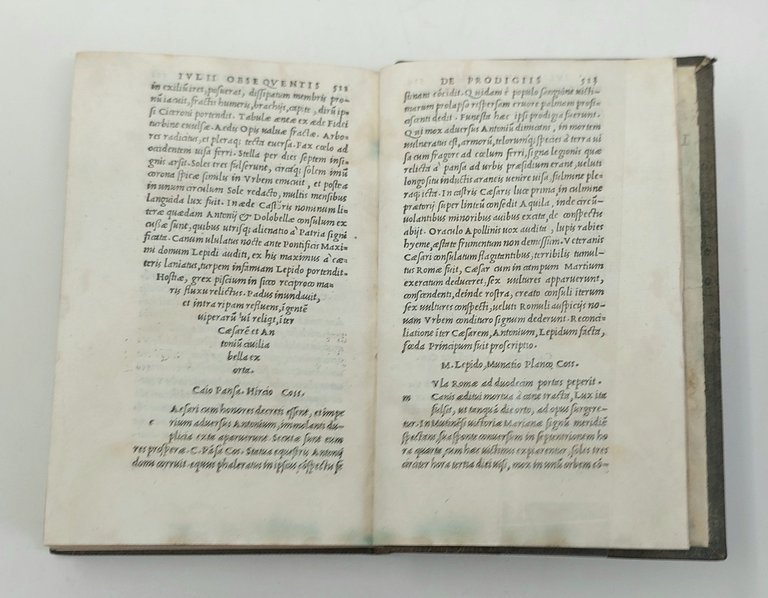 IVLII OBSEQVENTIS 522
in exiliũ iret, posuerat, dissipatum membris pro-
nũ iacuit, fractis humeris, brachijs, capite, dirũ ip-
si Ciceroni portendit. Tabulæ æneæ ex æde Fidei
turbine euulsæ. Aedis Opis ualuæ fractæ. Arbo-
res radicitus, et pleraq; tecta euersa. Fax cœlo ad
occidentem uisa ferri. Stella per dies septem insi-
gnis arsit. Soles tres fulserunt, circaq; solem imũ
corona spiceæ similis in Vrbem emicuit, et postea
in unum circulum Sole redacto, multis mensibus
Languida lux fuit. In æde Castoris nominum li-
teræ quædam Antonij & Dolobellæ consulum ex
cussæ sunt, quibus utrisq; alienatio à Patria signi
ficata. Canum ululatus nocte ante Pontificis Maxi
mi domum Lepidi auditi, ex his maximus à cæ-
teris laniatus, turpem infamiam Lepido portendit.
Hostiæ, grex piscium in sicco reciproco ma-
ris fluxu relictus. Padus inundauit,
et intra ripam refluens, ingentẽ
uiperarũ uim reliqt, iter
Cæsarẽ et An
toniũ ciuilia
bella ex
orta.
Caio Pansa. Hircio Coss.
c Aesari cum honores decreti essent, et impe
rium aduersus Antonium, immolanti du-
plicia exta apparuerunt. Secutæ sunt eum
res prosperæ. C. Pãsa Cos. Statua equestris Antonij
domi corruit. equus phaleratus in ipsius cõspectu fe
DE PRODIGIIS 523
stinans cõcidit. Quidam è populo sanguine uicti-
marum prolapso respersam cruore palmam profi-
ciscenti dedit. Funesta hæc ipsi prodigia fuerunt.
Qui mox aduersus Antoniũ dimicans, in mortem
uulneratus est, armorũ, telorumq; species à terra ui
sa cum fragore ad cœlum ferri, signa legionis quæ
relicta à Pansa ad urbis præsidium erant, ueluti
longo situ inductis araneis uenire uisa, fulmine ple-
raq; icta. In castris Cæsaris luce prima in culmine
prætorij super linteũ consedit Aquila, inde circũ-
uolantibus minoribus auibus excita, de conspectu
abijt. Oraculo Apollinis uox audita, lupis rabies
hyeme, æstate frumentum non demissum. Veteranis
Cæsari consulatum flagitantibus, terribilis tumul-
tus Romæ fuit, Cæsar cum in campum Martium
exercitum deduceret. sex uultures apparuerunt,
conscendenti, deinde rostra, creato consuli iterum
sex uultures conspecti, ueluti Romuli auspicijs no-
uam Vrbem conditurо signum dederunt. Reconci-
liatione iter Cæsarem, Antonium, Lepidum facta,
fœda Principum fuit proscriptio.
M. Lepido, Munatio Planco, Coss.
m Vla Romæ ad duodecim portas peperit.
Canis æditui mortua à cane tracta, Lux ita
fulsit, ut tanquã die orto, ad opus surgere-
tur. In Mutinẽsi uictoria Mariana signũ meridiẽ
spectans, sua sponte conuersum in septentrionem ho
ra quarta, cum hæc uictimis expiarentur, soles tres
circiter hora tertia diei uisi, mox in unũ orbem cõ-